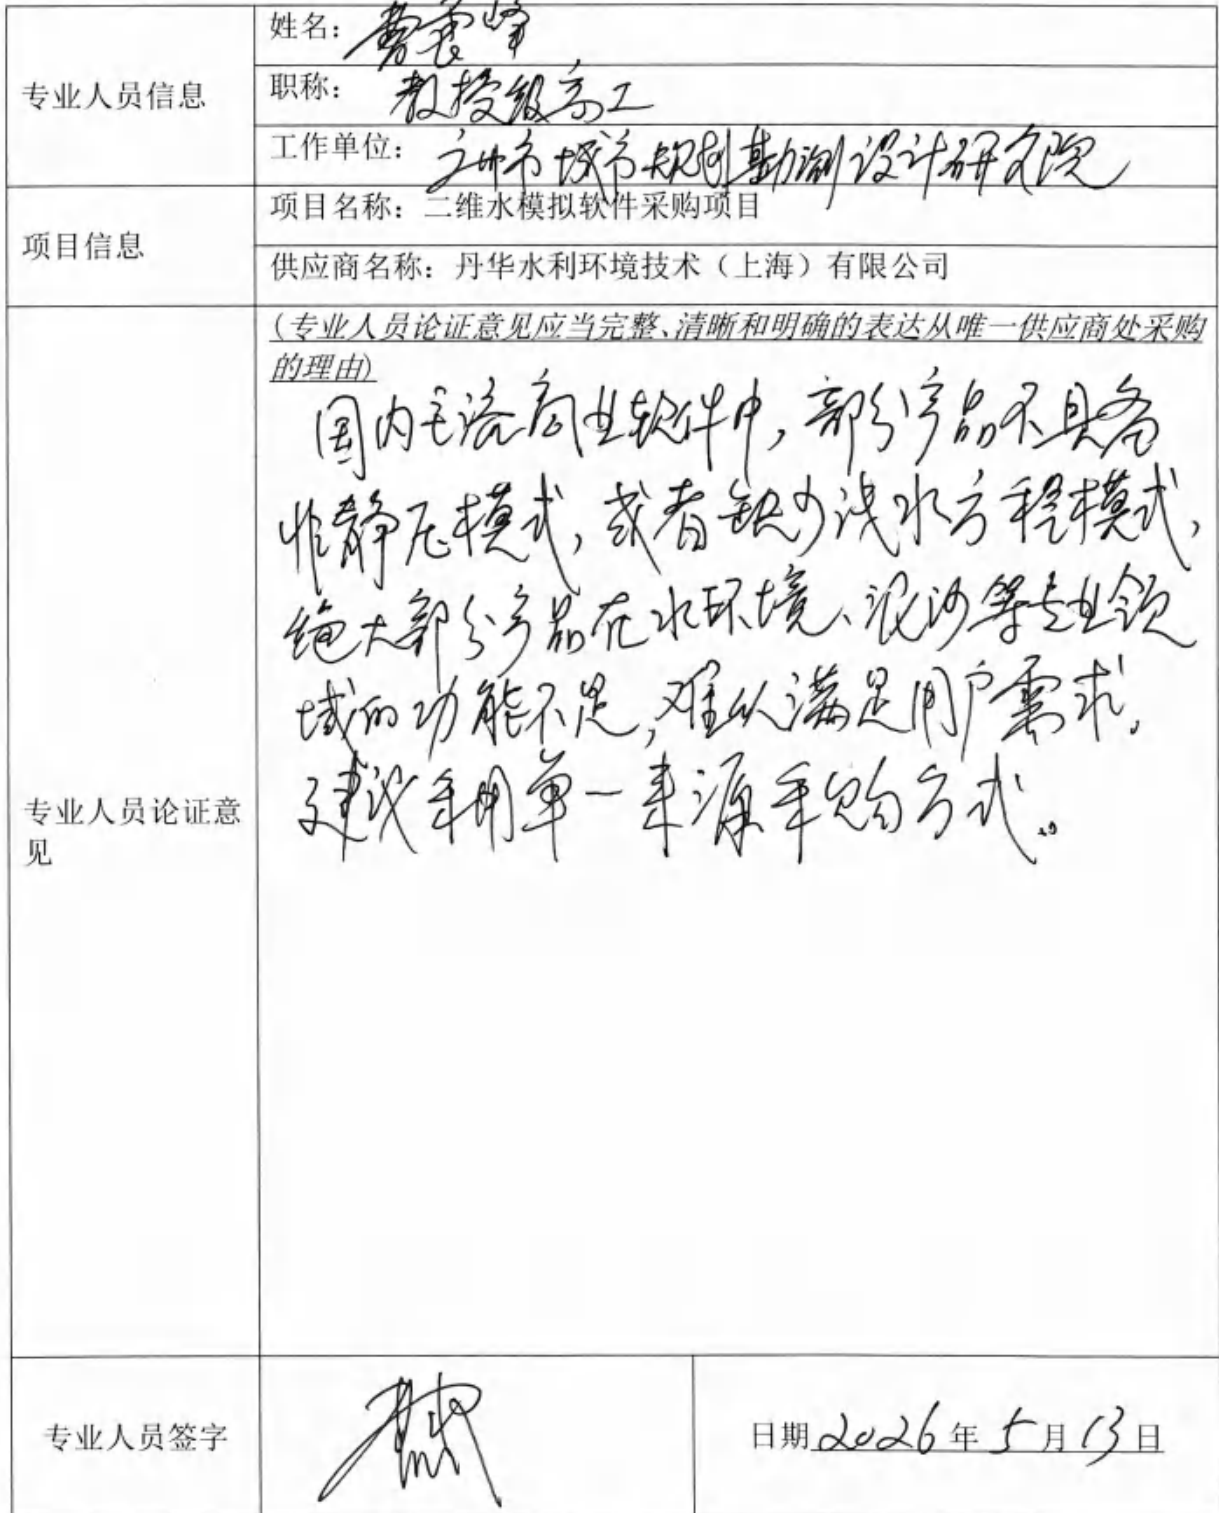 专业人员信息
姓名：
职称：教授级高工
工作单位：广州市城市规划勘测设计研究院
项目信息
项目名称：二维水模拟软件采购项目
供应商名称：丹华水利环境技术（上海）有限公司
专业人员论证意
见
（专业人员论证意见应当完整、清晰和明确的表达从唯一供应商处采购
的理由）
国内主流商业软件中，部分产品不具备
非静压模式，或者缺少浅水方程模式，
绝大部分产品在水环境、泥沙等专业领
域的功能不足，难以满足用户需求。
建议采用单一来源采购方式。
专业人员签字
日期2026年5月13日